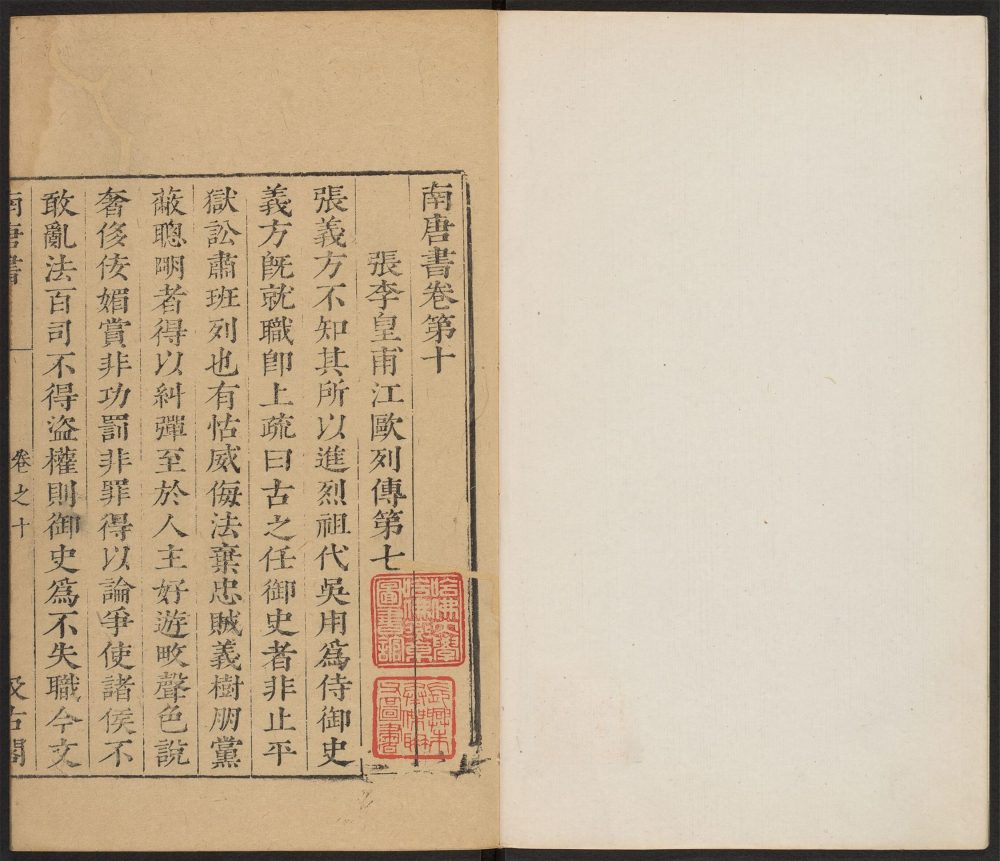 南唐書卷第十
張李皇甫江歐列傳第七
張義方不知其所以進烈祖代吳用爲侍御史
義方旣就職卽上疏曰古之任御史者非止平
獄訟肅班列也有怙威侮法棄忠賊義樹朋黨
蔽聰明者得以糾彈至於人主好遊畋聲色說
奢侈佞媚賞非功罰非罪得以論爭使諸侯不
敢亂法百司不得盜權則御史爲不失職今文
南唐書
卷之十
汲古閣
哈佛大學
哈佛燕京
圖書館